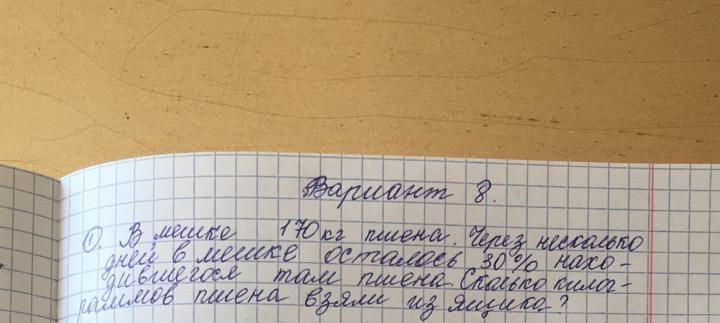 Вариант 8.
①. В мешке 170 кг пшена. Через несколько
дней в мешке осталось 30% нахо-
дившегося там пшена. Сколько килог-
раммов пшена взяли из ящика?